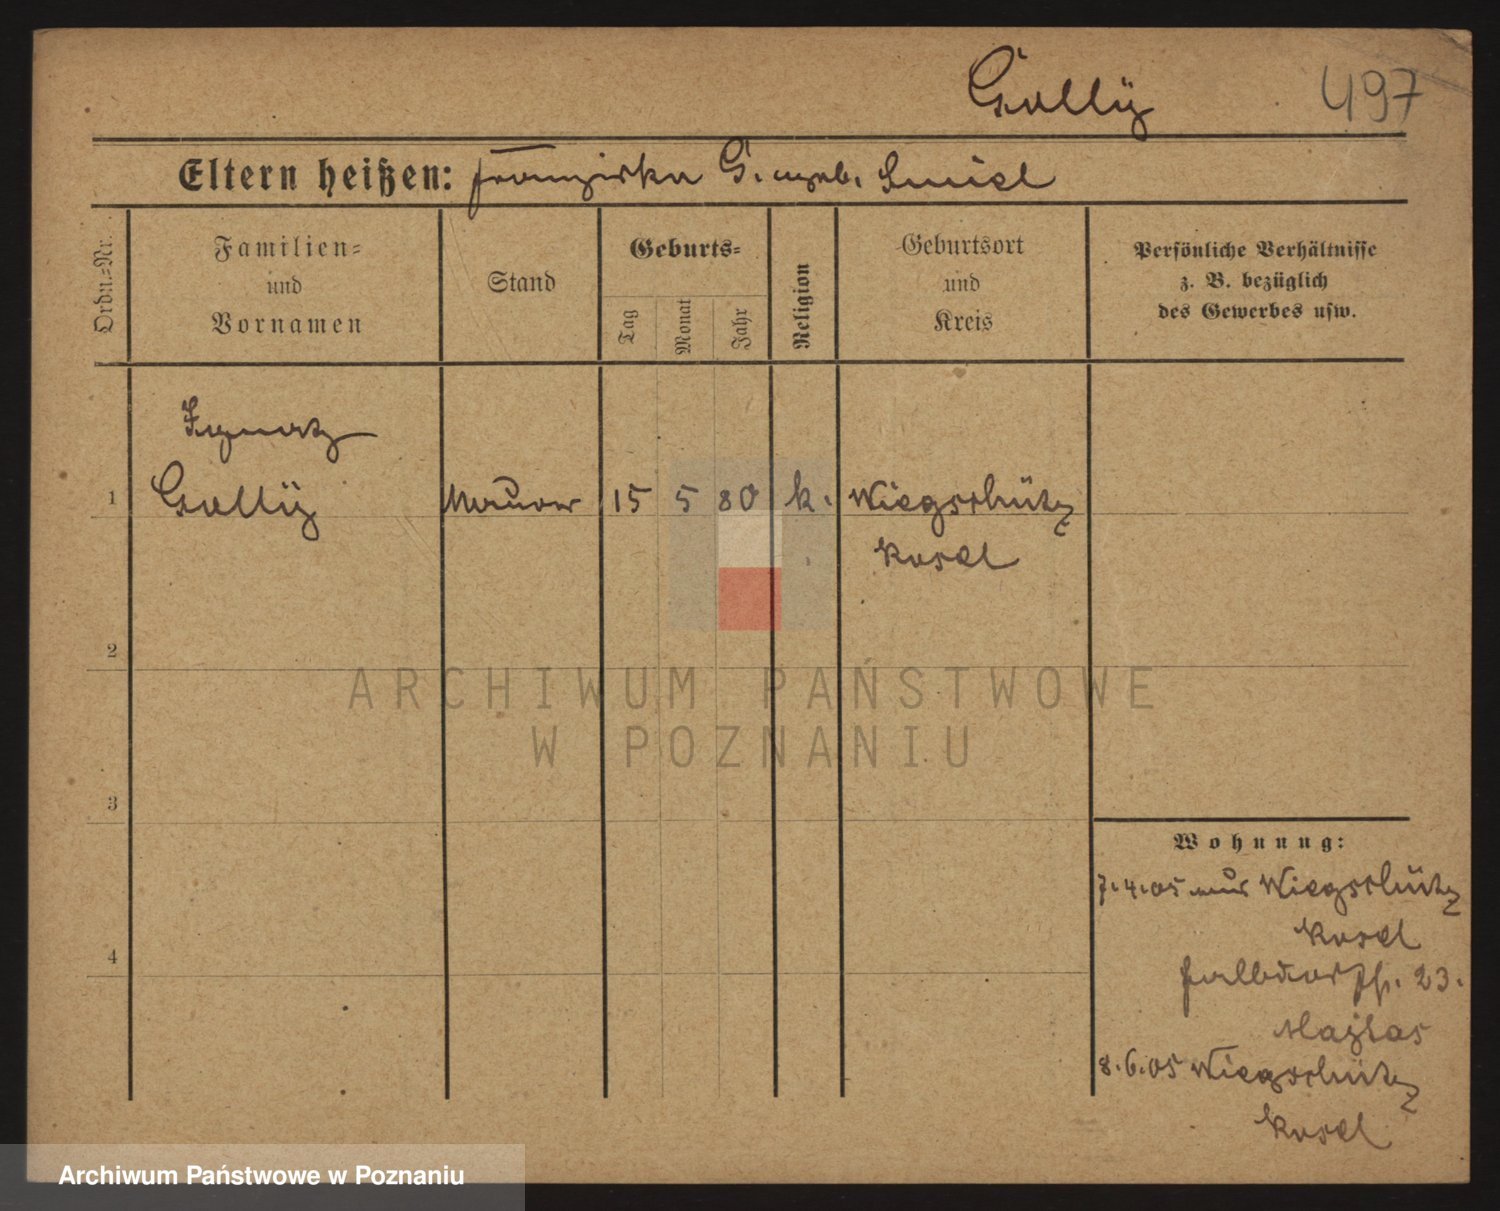 Gollÿ 497
Eltern heißen: Franziska G. ungeb. Smiel
Ordn.-Nr.
Familien-
und
Vornamen
Stand
Geburts-
Tag
Monat
Jahr
Religion
Geburtsort
und
Kreis
Persönliche Verhältnisse
z. B. bezüglich
des Gewerbes usw.
Ignatz
1 Gollÿ Maurer 15 5 80 k. Wiegschütz
Kosel
2
ARCHIWUM PAŃSTWOWE
W POZNANIU
3
Wohnung:
7.4.05 aus Wiegschütz
Kosel
4
23.
Majtas
8.6.05 Wiegschütz
Kosel
Archiwum Państwowe w Poznaniu